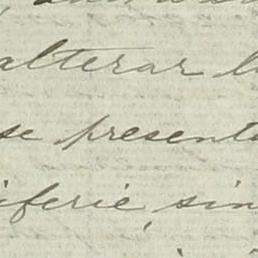 alterar l
se present
iferie, sin